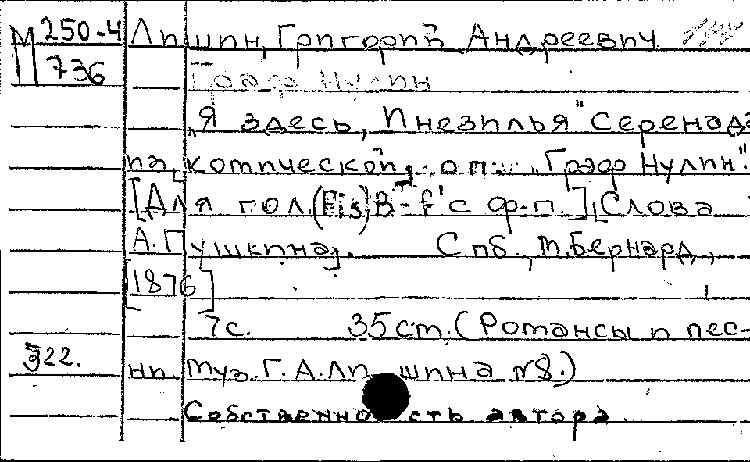 М 250-4 Липшин, Григорий Андреевич
736 Граф Нулин
„Я здесь, Инезилья" Серенада
из комической оп. „Граф Нулин".
[Для гол. (Fis) B-f' с ф-п.] [Слова
А. Пушкина]. Спб., М. Бернард,
[1876]
7с. 35 см. (Романсы и пес-
322. ни муз. Г. А. Лишина №8.)
Собственность автора.